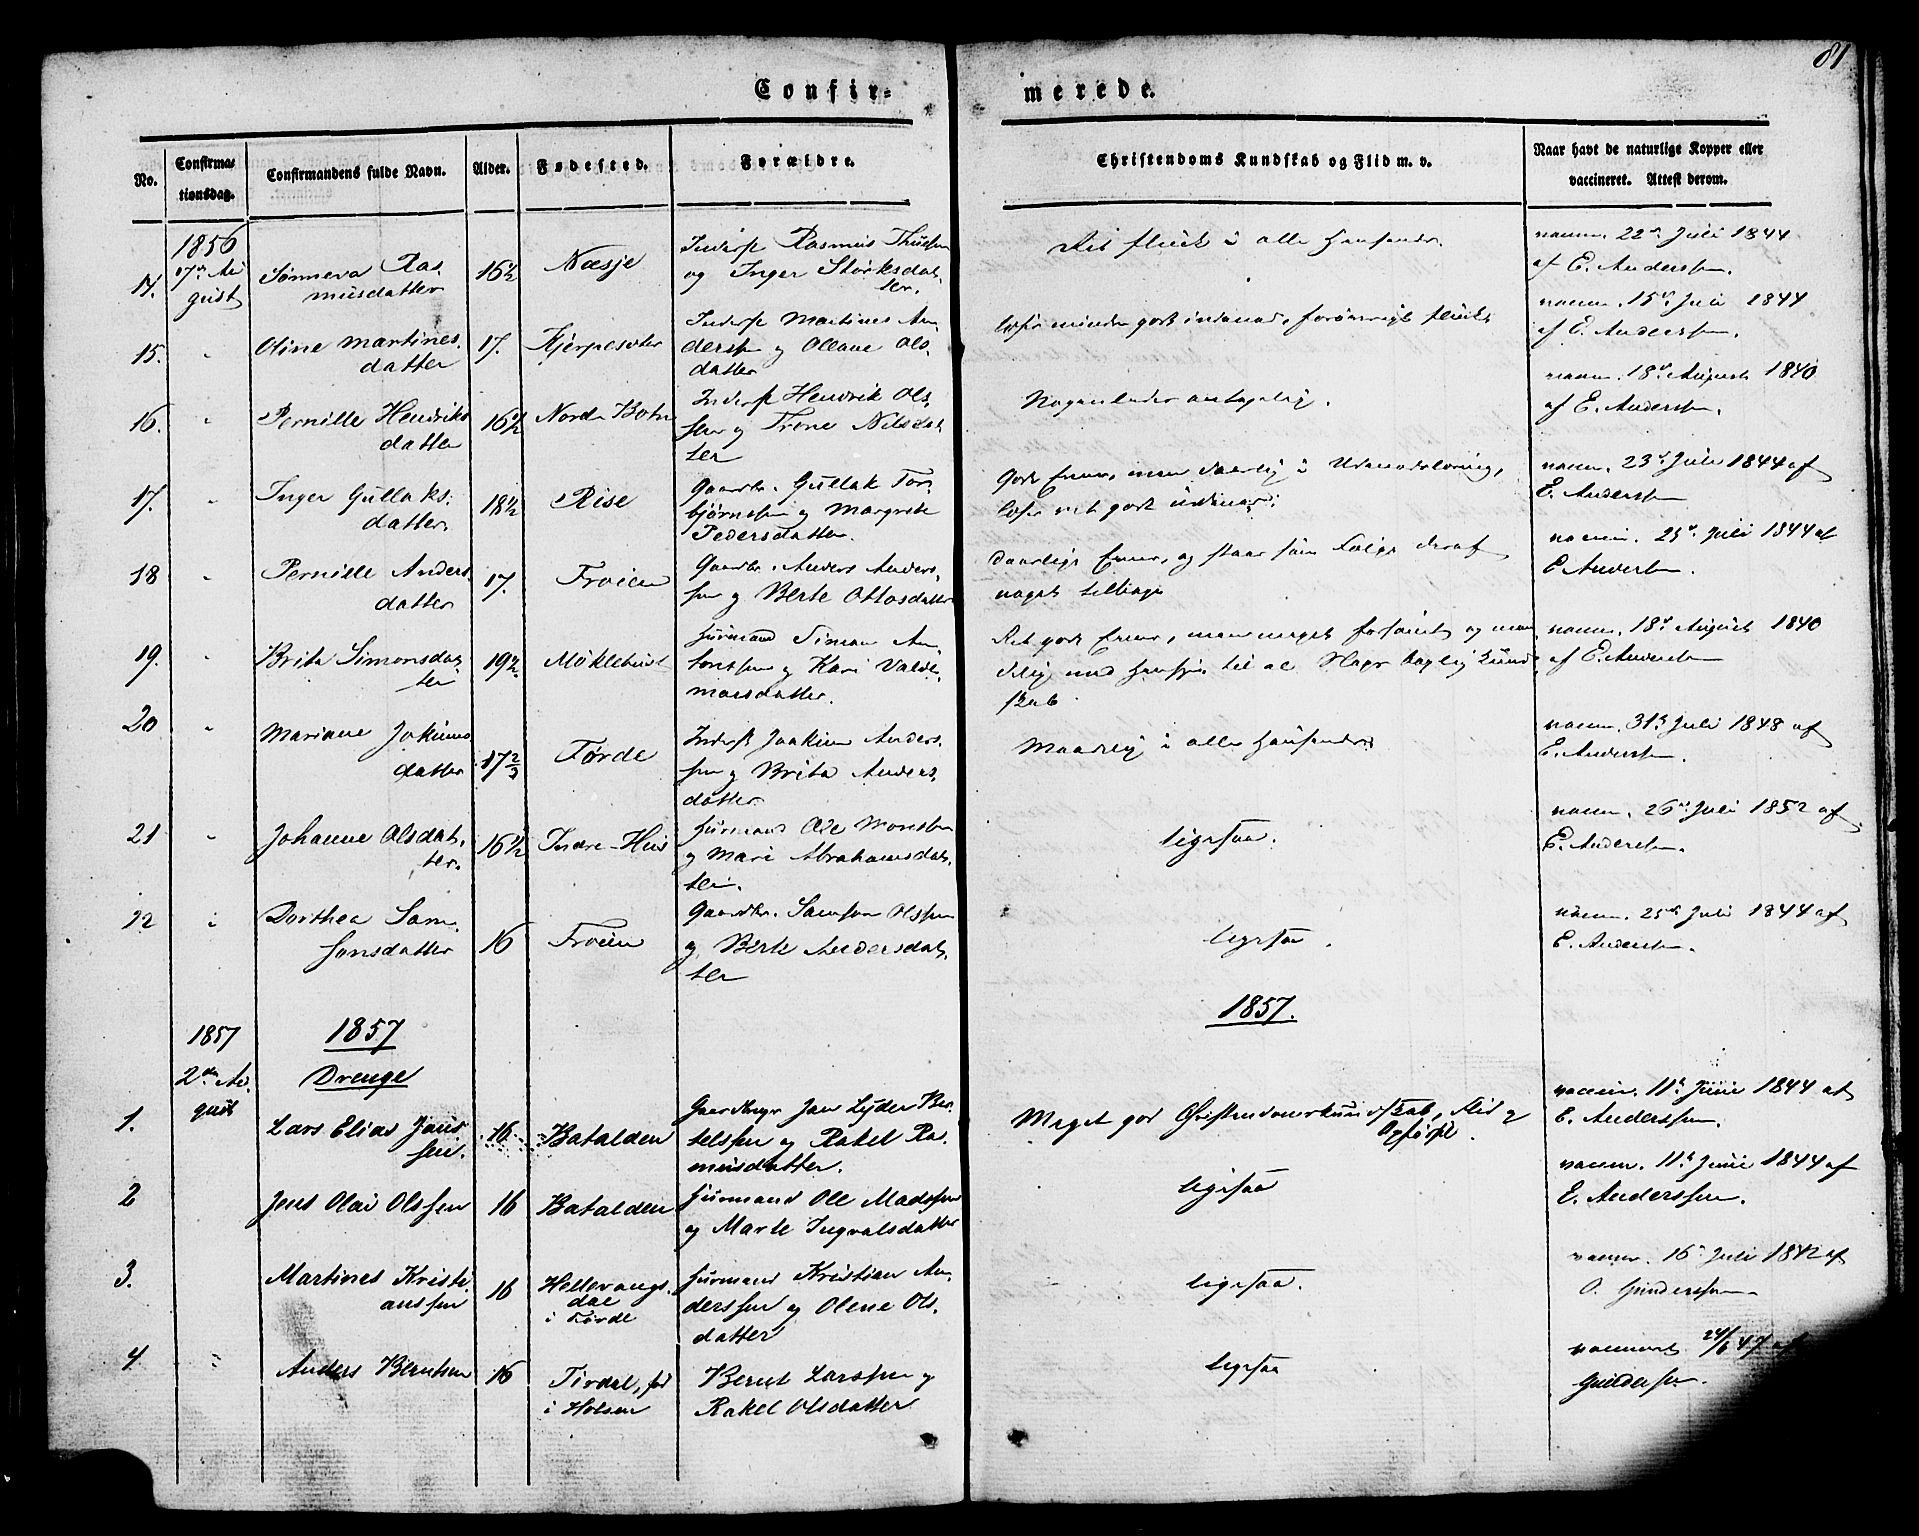 81
Confir-
merede.
No.
Confirma-
tionsdag.
Confirmandens fulde Navn.
Alder.
Fødested.
Forældre.
Christendoms Kundskab og Flid m. v.
Naar havt de naturlige Kopper eller
vaccineret. Attest derom.
1856
17de Au
gust
14.
Sønneva Ras
musdatter
16 1/2
Næsje
Inderst Rasmus
og Inger Størksdat
ter.
flink i alle Henseender.
vaccin. 22de Juli 1844
af E. Anderssen.
15.
"
Oline Martines
datter
17.
Kjerpesæter
Inderst Martines An
derssen og Oleane Ols
datter
læser minder godt indenad, forøvrigt flink
vaccin. 15de Juli 1844
af E. Anderssen.
16.
"
Pernille Henriks
datter
16 1/2
Nordr Botn
Inderst Hendrik Ols
sen og Trone Nilsdat
ter
Nogenlunde antagelig.
vaccin. 18de August 1840
af E. Anderssen.
17.
"
Inger Gullaks
datter.
18 1/2
Rise
Gaardbr. Gullak Tor
bjørnssen og Margrete
Pedersdatter.
Gode Evner, men daarlig i Udenadslæsning,
læser ret godt indenad.
vaccin. 23de Juli 1844 af
E. Anderssen
18
"
Pernille Anders
datter
17.
Frøien
Gaardbr. Anders Anders
sen og Berte Ottosdatter
daarlige Evner, og staar som Følge deraf
noget tilbage
vaccin. 25de Juli 1844 af
E Anderssen.
19.
"
Brita Simonsdat
ter
19 1/2
Møklebust
Huusmand Siman An
tonssen og Kari Valde
morsdatter.
Ret gode Evner, men meget forsømt og maa
delig med Hensyn til al Slags boglig Kund
skab.
vaccin. 18de August 1840
af E. Anderssen
20
"
Mariane Jokims
datter
17 2/3
Førde
Inderst Joakim Anders
sen og Brita Anders
datter
Maadelig i alle Henseender
vaccin. 31te Juli 1848 af
E. Anderssen.
21
"
Johanne Olsdat
ter.
16 1/2
Indre-Huus
Huusmand Ole Monssen
og Mari Abrahamsdat
ter.
ligesaa.
vaccin. 26de Juli 1852 af
E. Anderssen.
22
"
Dorthea Sam
sonsdatter
16
Frøien
Gaardbr. Samson Olssen
og Berte Andersdat
ter
ligesaa.
vaccin. 25de Juli 1844 af
E. Anderssen.
1857
1857
1857.
2den Au
gust
Drenge
1.
Lars Elias Jans
sen.
16
Batalden
Gaardbruger Jan Lyder Ber
telssen og Rakel Ra
musdatter.
Meget god Christendomskundskab, Flid og
Opførsel.
vaccin. 11te Juni 1844 af
E. Anderssen.
2
Jens Olai Olssen
16
Batalden
Huusmand Ole Madssen
og Marte Ingvalsdatter
ligesaa
vaccin. 11te Juni 1844 af
E. Anderssen.
3.
Martines Kristi
anssen
16
Hellevangs
dal
i Førde
Huusmand Kristian An
derssen og Olene Ols
datter
ligesaa.
vaccin. 16de Juli 1842 af
O. Gunderssen
4.
"
Anders Berntsen
16
Tirdal, fød
i Holsen
Bernt Larssen og
Rakel Olsdatter
ligesaa
vaccineret 24/6 47 af
Gunderssen.